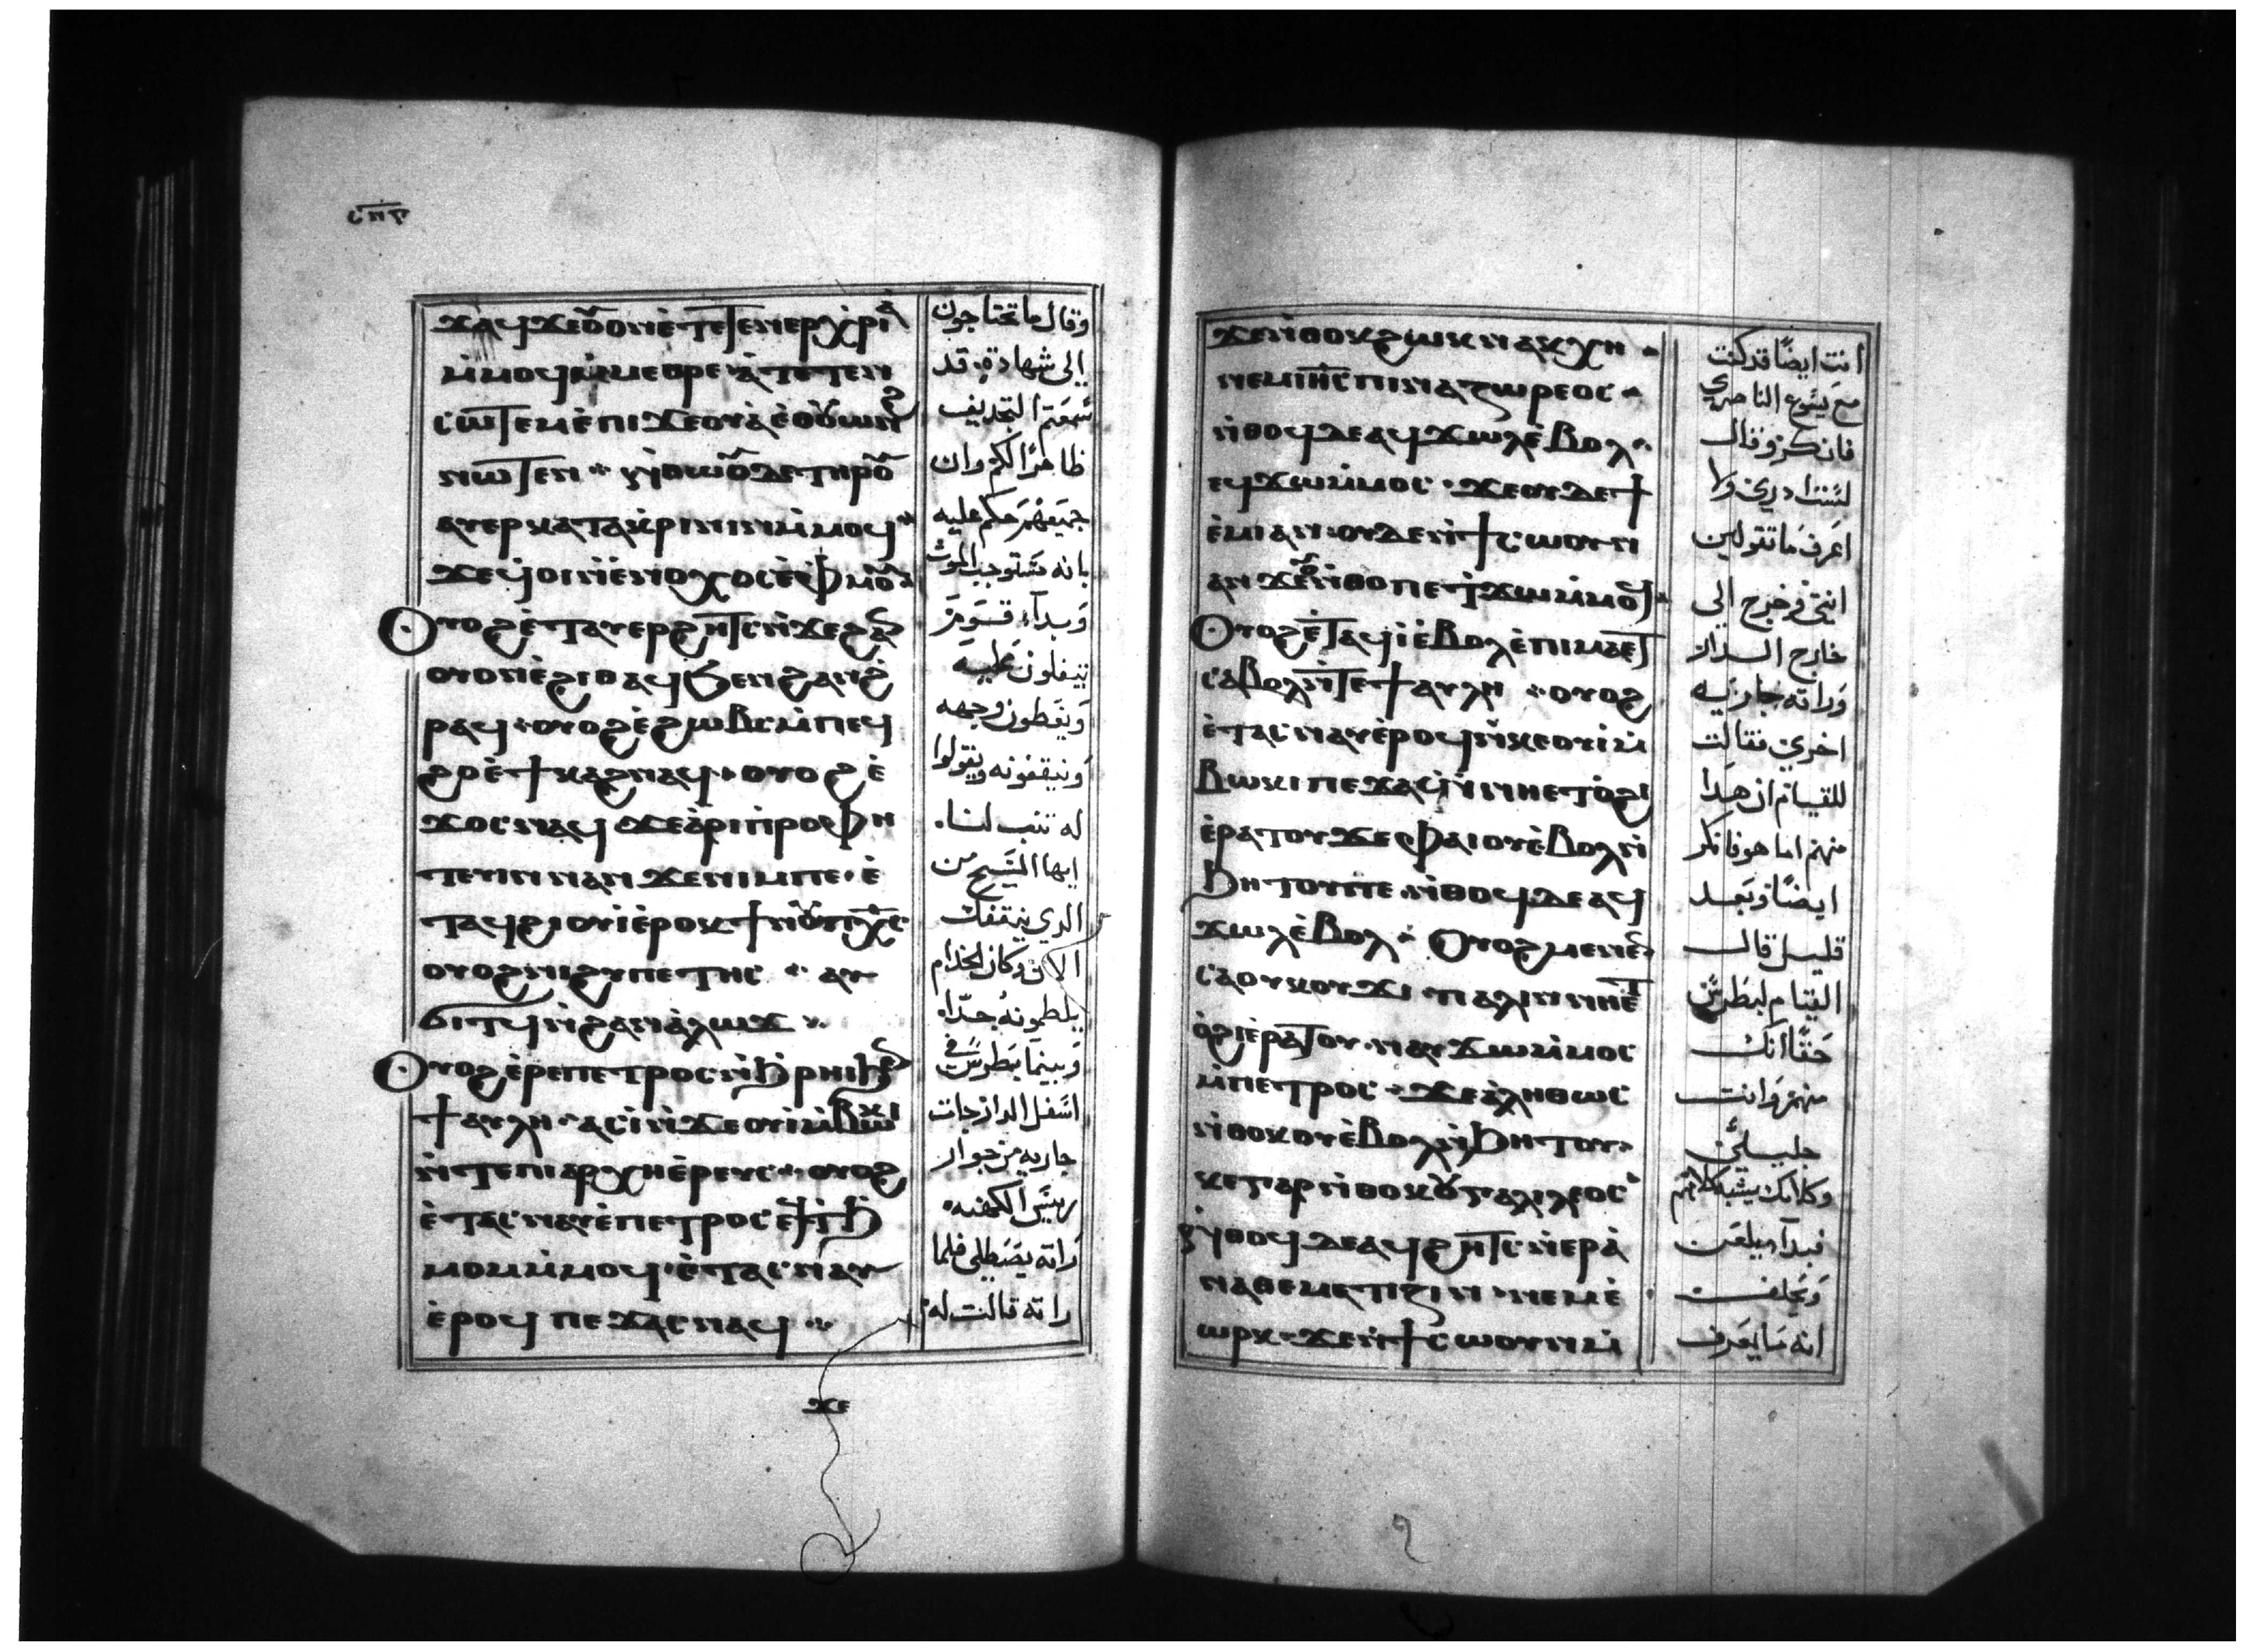 ϫⲁϥ ϫⲉ ⲟⲩⲟⲛ ⲉ̀ⲧⲉⲧⲉⲛⲉⲣⲭⲣⲓⲁ
ⲙ̀ⲙⲟϥ ⲙ̀ⲙⲉⲑⲣⲉ ⲁ̀ⲧⲉⲧⲉⲛ
ⲥⲱⲧⲉⲙ ⲉ̀ⲡⲓϫⲉⲟⲩⲁ̀ ⲉϥⲟⲩⲱⲛϩ
ⲛⲱⲧⲉⲛ ⁘ ⲛ̀ⲑⲱⲟⲩ ⲇⲉ ⲧⲏⲣⲟⲩ
ⲁⲩⲉⲣⲕⲁⲧⲁⲕⲣⲓⲛⲓⲛ ⲙ̀ⲙⲟϥ ⁘
ϫⲉ ϥⲟⲓ ⲛ̀ⲉⲛⲟⲭⲟⲥ ⲉ̀ⲫⲙⲟⲩ
Ⲟⲩⲟϩ ⲉ̀ⲧⲁⲩⲉⲣϩⲏⲧⲥ ⲛ̀ϫⲉ ϩⲁⲛ
ⲟⲩⲟⲛ ⲉ̀ϩⲓⲑⲁϥ ϧⲉⲛ ⲡⲉϥϩ
ⲣⲁϥ ⲟⲩⲟϩ ⲉ̀ϩⲱⲃⲥ ⲙ̀ⲡⲉϥ
ϩⲟ ⲉ̀ϯⲕⲁϩ ⲛⲁϥ ⲟⲩⲟϩ ⲉ̀
ϫⲟⲥ ⲛⲁϥ ϫⲉ ⲁ̀ⲣⲓⲡⲣⲟⲫⲏ
ⲧⲉⲩⲓⲛ ⲛⲁⲛ ϫⲉ ⲛⲓⲙ ⲡⲉ ⲉ̀
ⲧⲁϥϩⲓⲟⲩⲓ̀ ⲉ̀ⲣⲟⲕ ϯⲛⲟⲩ ⲡⲭ̅ⲥ̅
ⲟⲩⲟϩ ⲛⲓϩⲩⲡⲉⲧⲏⲥ ⁘ ⲁⲩ
ϭⲓⲧϥ ⲛ̀ϩⲁⲛⲁ̀ⲗⲱϫ ⁘
Ⲟⲩⲟϩ ⲉ̀ⲣⲉ ⲡⲉⲧⲣⲟⲥ ⲛ̀ϧⲣⲏⲓ ϧⲉⲛ
ϯⲁⲩⲗⲏ ⁘ ⲁⲥⲓ̀ ⲛ̀ϫⲉ ⲟⲩⲓ̀ ⲙ̀ⲃⲱⲕⲓ
ⲛ̀ⲧⲉ ⲡⲓⲁⲣⲭⲏⲉ̀ⲣⲉⲩⲥ ⁘ ⲟⲩⲟϩ
ⲉ̀ⲧⲁⲥⲛⲁⲩ ⲉ̀ⲡⲉⲧⲣⲟⲥ ⲉϥϧ
ⲙⲟⲙ ⲙ̀ⲙⲟϥ ⲉ̀ⲧⲁⲥⲛⲁⲩ
ⲉ̀ⲣⲟϥ ⲡⲉϫⲁⲥ ⲛⲁϥ ⁘
ϫⲉ
وقال ما تحتاجون
الى شهادة قد
سمعتم التجديف
ظاهرًا لكم وان
جميعهم حكم عليه
بانه مستوجب الموت
وبدأ قوم
يتفلون عليه
ويغطون وجهه
ويقفونه ويقولوا
له تنب لنا
ايها المسيح من
الدي يقفك
الان وكان الخدام
يلطمونه جدًا
وبينما بطرس في
اسفل الدار جات
جاريه من جوار
ريس الكهنه
راته يصطلي فلما
راته قالت له
ϫⲉ ⲛ̀ⲑⲟⲕ ϩⲱⲕ ⲛⲁⲕⲭⲏ ⁘
ⲛⲉⲙ ⲓⲏ̅ⲥ̅ ⲡⲓⲛⲁⲍⲱⲣⲉⲟⲥ ⁘
ⲛ̀ⲑⲟϥ ⲇⲉ ⲁϥϫⲱⲗ ⲉ̀ⲃⲟⲗ ⁘
ⲉϥϫⲱ ⲙ̀ⲙⲟⲥ ϫⲉ ⲟⲩⲇⲉ ϯ
ⲉ̀ⲙⲓ ⲁⲛ ⲟⲩⲇⲉ ⲛ̀ϯⲥⲱⲟⲩⲛ
ⲁⲛ ϫⲉ ⲟⲩ ⲛ̀ⲑⲟ ⲡⲉⲧϫⲱ ⲙ̀ⲙⲟϥ
Ⲟⲩⲟϩ ⲉ̀ⲧⲁϥⲓ̀ ⲉ̀ⲃⲟⲗ ⲉ̀ⲡⲓⲙⲁ ⲉⲧ
ⲥⲁⲃⲟⲗ ⲛ̀ⲧⲉ ϯⲁⲩⲗⲏ ⁘ ⲟⲩⲟϩ
ⲉ̀ⲧⲁⲥⲛⲁⲩ ⲉ̀ⲣⲟϥ ⲛ̀ϫⲉ ⲕⲉⲟⲩⲓ̀ ⲙ̀
ⲃⲱⲕⲓ ⲡⲉϫⲁⲥ ⲛ̀ⲛⲏ ⲉⲧⲟ̀ϩⲓ
ⲉ̀ⲣⲁⲧⲟⲩ ϫⲉ ⲫⲁⲓ ⲟⲩⲉ̀ⲃⲟⲗ ⲛ̀
ϧⲏⲧⲟⲩ ⲡⲉ ⲛ̀ⲑⲟϥ ⲇⲉ ⲁϥ
ϫⲱⲗ ⲉ̀ⲃⲟⲗ ⁘ Ⲟⲩⲟϩ ⲙⲉⲛⲉⲛ
ⲥⲁ ⲟⲩⲕⲟⲩϫⲓ ⲡⲁⲗⲓⲛ ⲛⲏ ⲉⲧ
ⲟ̀ϩⲓ ⲉ̀ⲣⲁⲧⲟⲩ ⲛⲁⲩϫⲱ ⲙ̀ⲙⲟⲥ
ⲙ̀ⲡⲉⲧⲣⲟⲥ ⁘ ϫⲉ ⲁ̀ⲗⲏⲑⲱⲥ
ⲛ̀ⲑⲟⲕ ⲟⲩⲉ̀ⲃⲟⲗ ⲛ̀ϧⲏⲧⲟⲩ
ⲕⲉ ⲅⲁⲣ ⲛ̀ⲑⲟⲕ ⲟⲩⲅⲁⲗⲓⲗⲉⲟⲥ
ⲛ̀ⲑⲟϥ ⲇⲉ ⲁϥϩⲏⲧⲥ ⲛ̀ⲉⲣⲁ̀
ⲛⲁⲑⲉⲙⲉⲧⲓⲍⲓⲛ ⲛⲉⲙ ⲉ̀
ⲱⲣⲕ ϫⲉ ⲛ̀ϯⲥⲱⲟⲩⲛ ⲙ̀
انت ايضًا قد كنت
مع يسوع الناصري
فانكر وقال
لست ادري ولا
اعرف ما تقولين
انتي فخرج الى
خارج الدار
وراته جاريه
اخرى فقالت
للقيام ان هدا
منهم اما هو فانكر
ايضًا وبعد
قليل قال
القيام لبطرس
حقًا انك
منهم وانت
جليلي
وكلامك يشبه كلامهم
فبدأ يلعن
ويحلف
انه ما يعرف